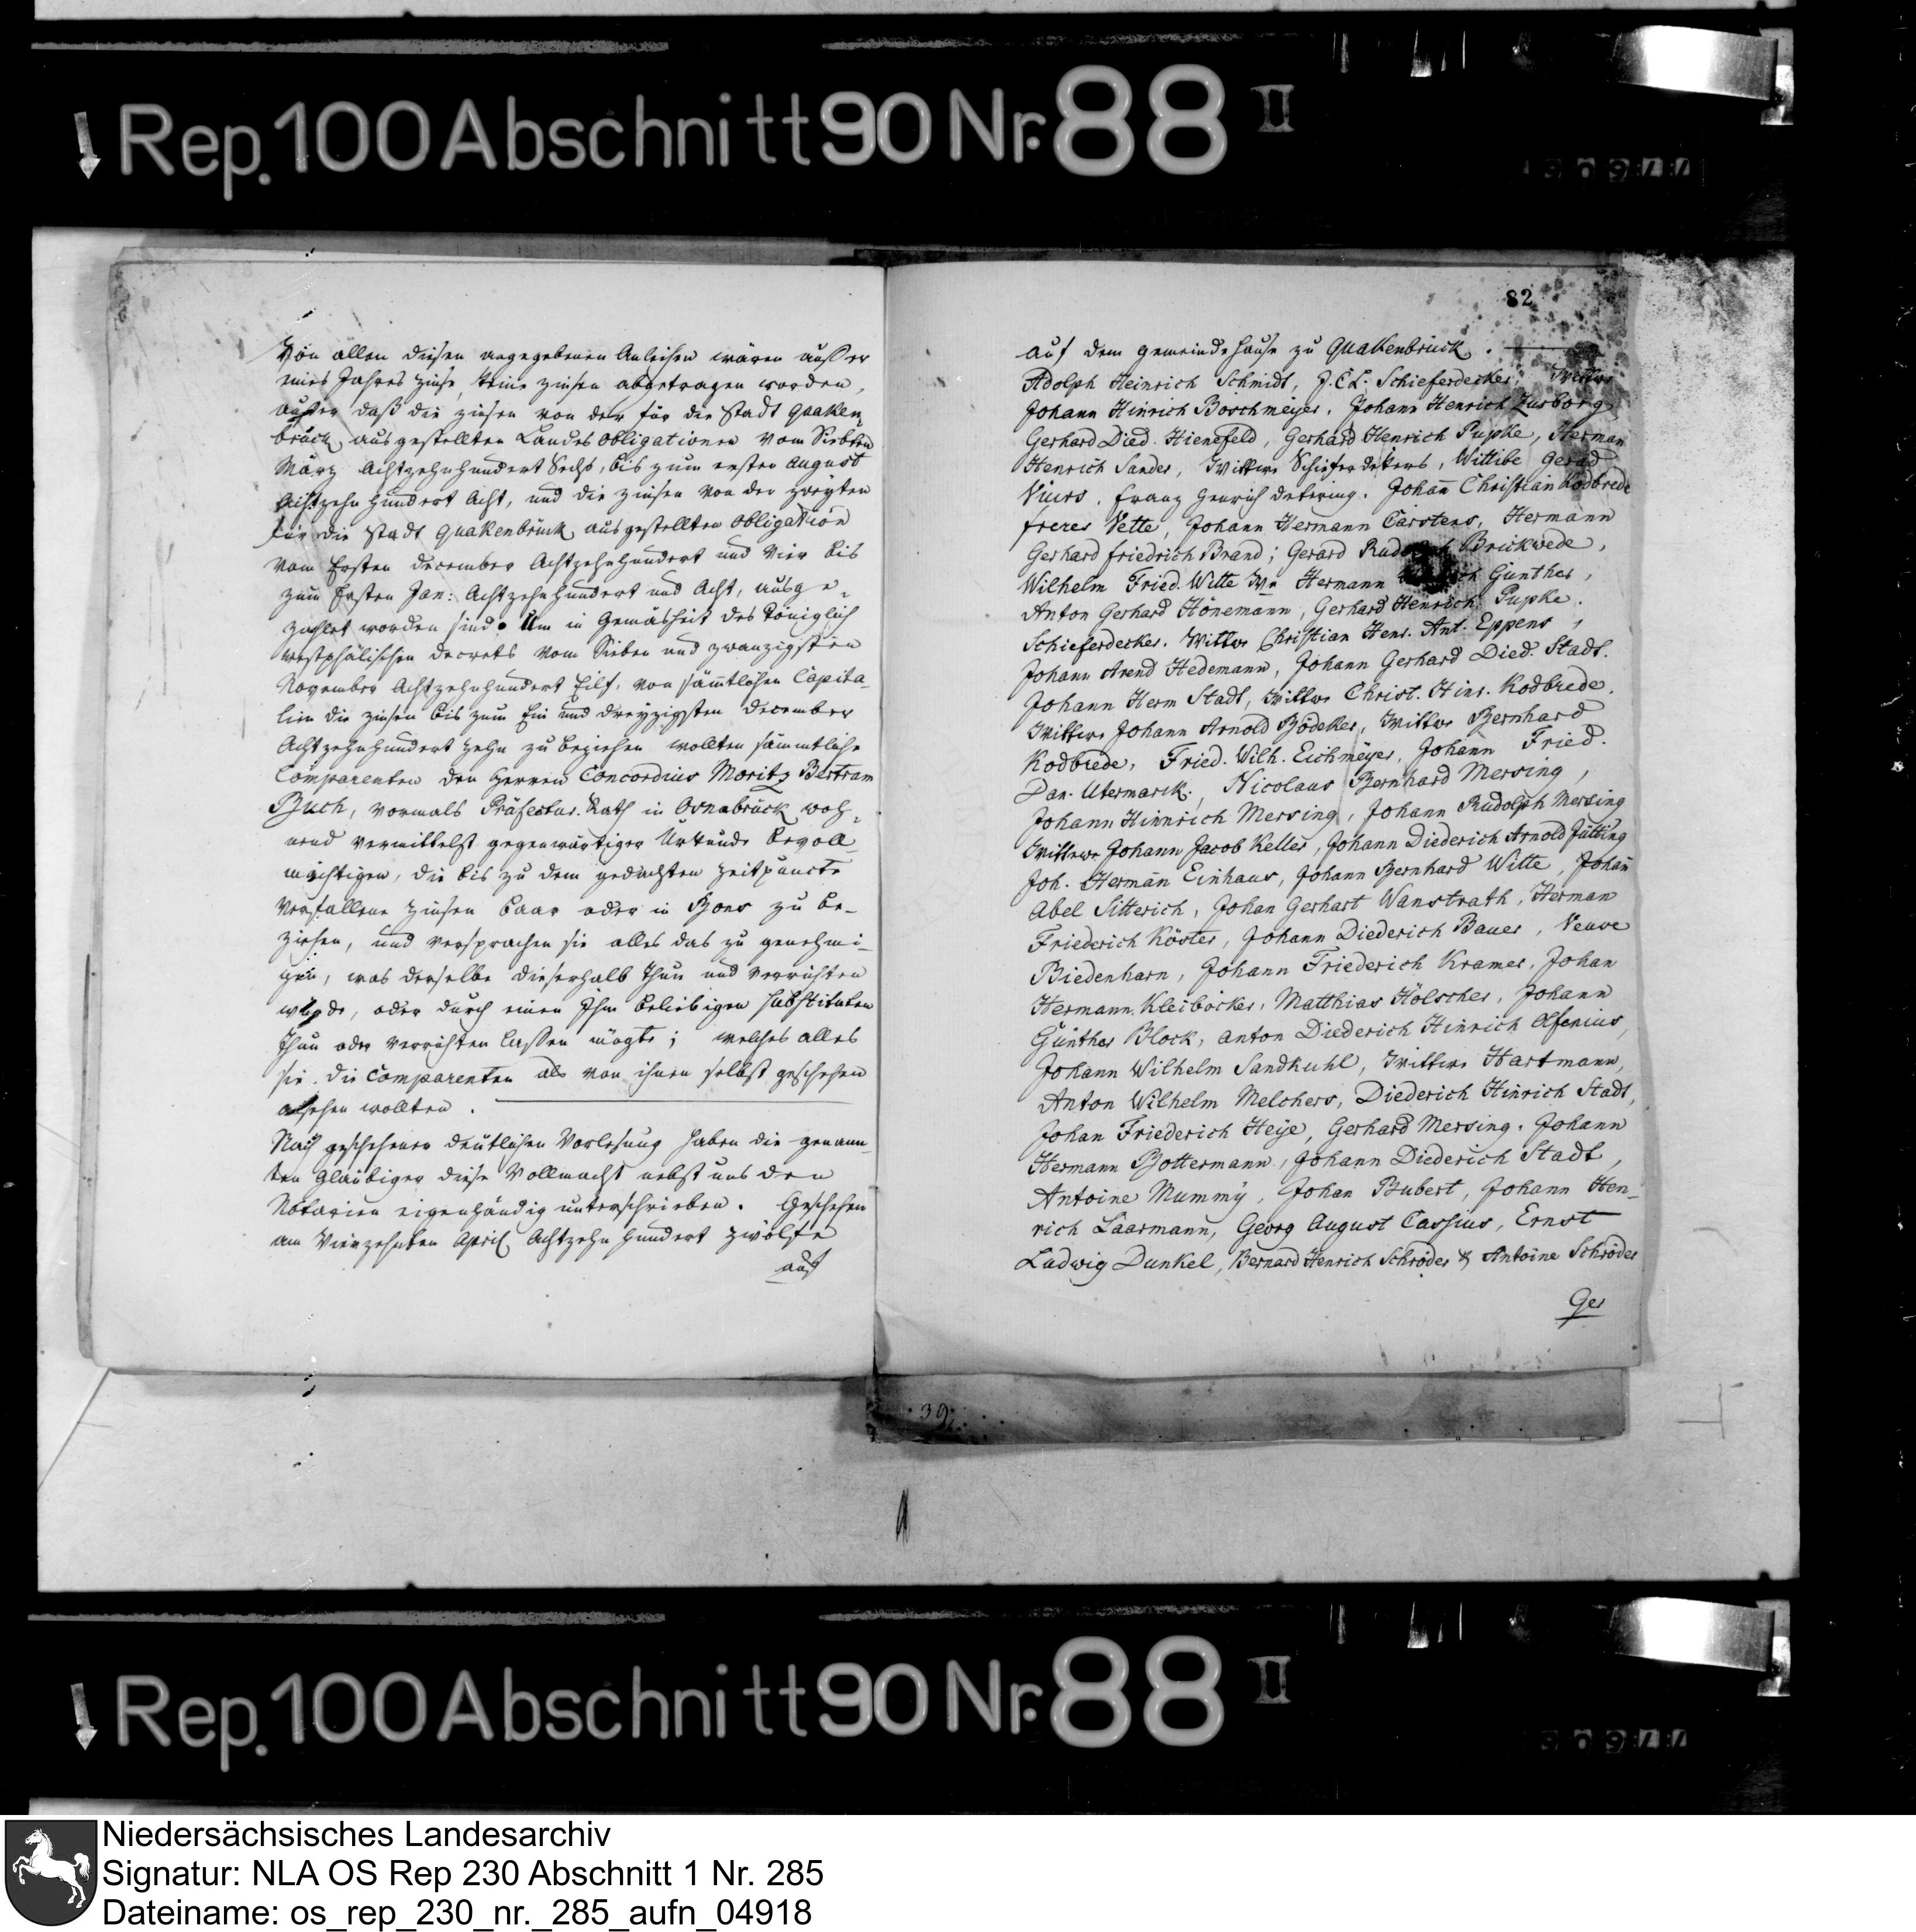 Rep. 100 Abschnitt 90 Nr. 88 II
Von allen diesen angegebenen Anleihen wären außer
eines Jahres Zinse, keine Zinsen abgetragen worden,
außer daß die Zinsen von der für die Stadt Quaken-
brück ausgestellten Landes Obligationen vom Siebten
März Achtzehnhundert Sechs, bis zum ersten August
Achtzehn hundert Acht, und die Zinsen von der zweyten
für die Stadt Quakenbrück ausgestellten Obligation
vom Ersten December Achtzehnhundert und Vier bis
zum Ersten Jan: Achtzehnhundert und Acht, ausge-
zahlet worden sind. Um in Gemäsheit des Königlich
westphälischen Decrets vom Sieben und zwanzigsten
November Achtzehnhundert Eilf, von sämtlichen Capita-
lien die Zinsen bis zum Ein und dreyzigsten December
Achtzehnhundert zehn zu beziehen wollten sämmtliche
Comparenten den Herren Concordius Moritz Bertram
Buch, vormals Präfectur-Rath in Osnabrück woh-
nend vermittelst gegenwärtiger Urkunde bevoll-
mächtigen, die bis zu dem gedachten Zeitpuncte
verfallene Zinsen baar oder in Bons zu be-
ziehen, und versprachen sie alles das zu genehmi-
gen, was derselbe dieserhalb thun und verrichten
würde, oder durch einen Ihm beliebigen Substituten
thun oder verrichten lassen mögte; welches alles
sie die Comparenten als von ihnen selbst geschehen
ansehen wollten.
Nach geschehener deutlichen Vorlesung haben die genann-
ten Gläubiger diese Vollmacht nebst uns den
Notarien eigenhändig unterschrieben. Geschehen
am Vierzehnten April Achtzehn hundert zwölfe
auf
82
auf dem Gemeindehause zu Quakenbrück.
Adolph Heinrich Schmidt, J. E L. Schieferdecker, Wittwe
Johann Hinrich Böschmeyer, Johann Henrich Zurborg
Gerhard Died. Hienefeld, Gerhard Henrich Pupke, Herman
Henrich Sander, Wittwe Schieferdekers, Wittibe Gerad
Viurs, Franz Henrich Detering, Johan̄ Christian Kodbrede
freres Vette, Johann Hermann Carstens, Hermann
Gerhard friedrich Brand; Gerard Rudolph Brickwede,
Wilhelm Fried. Witte Ww Hermann Günther,
Anton Gerhard Hönemann, Gerhard Henrich Pupke.
Schieferdecker. Wittwe Christian Henr. Ant. Eppens,
Johann Arend Hedemann, Johann Gerhard Died. Stadt.
Johann Herm Stadt, Wittwe Christ. Hinr. Kodbrede.
Wittwe Johann Arnold Bödeker, Wittwe Bernhard
Kodbrede, Fried. Wilh. Eichmeyer, Johann Fried.
Dan. Utermarck, Nicolaus Bernhard Mersing,
Johann Hinnrich Mersing, Johann Rudolph Mersing
Wittwe Johann Jacob Keller, Johann Diederich Arnold Jütting
Joh. Herman̄ Einhaus, Johann Bernhard Witte, Johan̄
Abel Sitterich, Johan Gerhart Wanstrath, Herman
Friederich Köster, Johann Diederich Bauer, Veuve
Biedenharn, Johann Friederich Kramer, Johan
Hermann Kleiböcker, Matthias Hölscher, Johann
Günther Block, Anton Diederich Hinrich Olfenius,
Johann Wilhelm Sandkuhl, Wittwe Hartmann,
Anton Wilhelm Melchers, Diederich Hinrich Stadt,
Johan Friederich Heije, Gerhard Mersing, Johann
Hermann Bottermann, Johann Diederich Stadt,
Antoine Mummÿ, Johan Bubert, Johann Hen-
rich Laarmann, Georg August Cassius, Ernst
Ludwig Dunkel, Bernard Henrich Schröder & Antoine Schröder
Ger
39
Rep. 100 Abschnitt 90 Nr. 88 II
Niedersächsisches Landesarchiv
Signatur: NLA OS Rep 230 Abschnitt 1 Nr. 285
Dateiname: os_rep_230_nr._285_aufn_04918